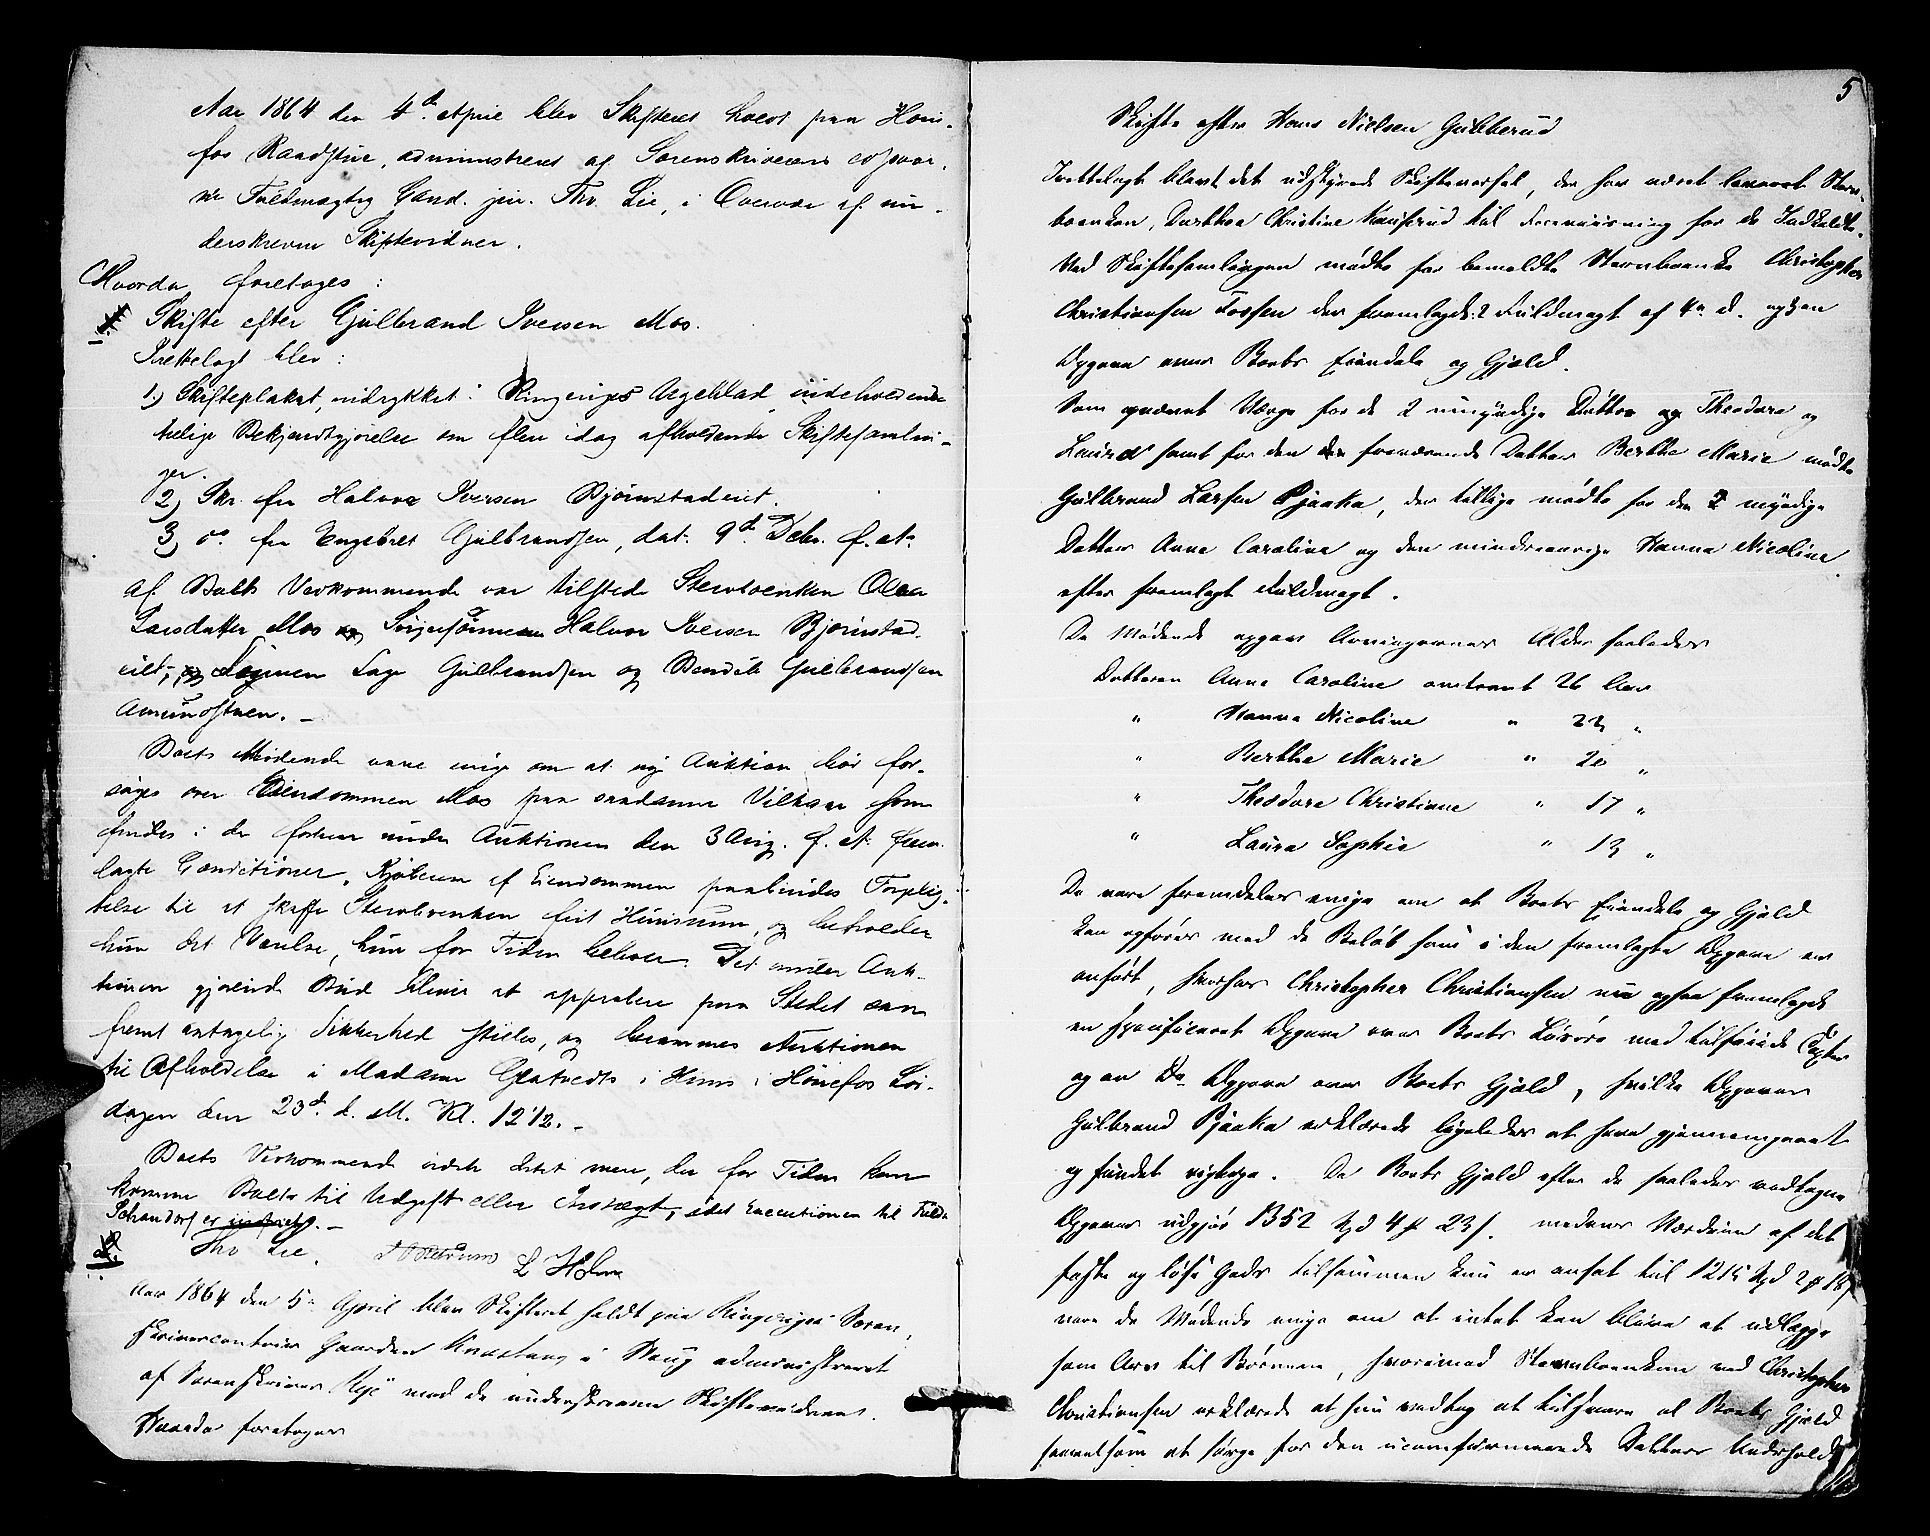 Aar 1864 den 4d. April blev Skifteret holdt paa Høne-
fos Raadstue, administreret af Sorenskriverens edsvor-
ne Fuldmægtig Cand. jur. Thv. Lie, i Overvær af un-
derskrevne Skiftevidner.
Hvorda foretoges:
Skifte efter Gulbrand Iversen Mos.
Irettelagt blev:
1) Skifteplakat, indrykket i Ringeriges Ugeblad indeholdende
helige Bekjendtgjørelse om flere idag afholdende Skiftesamlin-
ger.
2) Skr. fra Halvor Iversen Bjørnstadeiet.
3) do. fra Engebret Gulbrandsen, dat. 9d. Debr. f. A.
af Boets Vedkommende var tilstede Stervboenken Olea
Larsdatter Mos og Svigersønnen Halvor Iversen Bjørnstad-
eiet, og Sønnen Lage Gulbrandsen og Bendik Gulbrandsen
Amundstuen. -
Boets Mødende vare enige om at ny Auktion bør for-
søges over Eiendommen Mos paa saadanne Vilkaar som
findes i de forhen under Auktionen den 3 Aug. f. A. frem-
lagte Conditioner. Kjøberen af Eiendommen paalindes Forplig-
telse til at skaffe Stervboenken frit Huusrum, og beholder
hun det Værelse, hun for Tiden beboer. Det under Auk-
tionen gjørende Bud bliver at approbere paa Stedet saa-
fremt antagelig Sikkerhed stilles, og berammes Auktionen
til Afholdelse i Madame Glatvedts Huus i Hønefos Lør-
dagen den 23d. d. M. Kl. 12 1/2. -
Boets Vedkommende vidste intet mere, der for Tiden kan
komme Boet til Udgift eller Indtægt, idet Executionen til
Schandorf er indfriet. -
Thv Lie. L Holm
Aar 1864 den 5te April blev Skifteret holdt paa Ringeriges Soren-
skrivercontoir Gaarden i Haug administreret
af Sorenskriver med de underskrevne Skiftevidner.
Hvorda foretoges
5
Skifte efter Hans Nielsen Gubberud
Irettelagt blev det udstyrede Skiftevarsel, der har været leveret Sterv-
boenken, Dorthea Christine til Foreviisning for de Indkaldte.
Ved Skiftesamlingen mødte for bemeldte Stervboenke Christopher
Christiansen Fossen der fremlagde: 2 Fuldmagt af 4de d. og 3 en
Opgave over Boets Eiendele og Gjæld.
Som Værge for de 2 umyndige Døttre og Theodore og
Laura samt for den fraværende Datter Berthe Marie mødte
Gulbrand Larsen Pjaaka, der tillige mødte for den myndige
Datter Anne Caroline og den mindreaarige Hanna Nicoline
efter fremlagt Fuldmagt.
De Mødende opgav Arvingernes Alder saaledes
Datteren Anne Caroline omtrent 26 Aar
" Hanna Nicoline " 22 "
" Berthe Marie " 20 "
" Theodore Christiane " 17 "
" Laura Sophie " 13 "
De vare fremdeles enige om at Boets Eiendele og Gjæld
kan opføres med de Beløb som i den fremlagte Opgave er
anført, hvorhos Christopher Christiansen nu ogsaa fremlagde
en specificeret Opgave over Boets Løsøre med tilføiede Taxter
og en Do Opgave over Boets Gjæld, hvilke Opgaver
Gulbrand Pjaaka erklærede ligeledes at have gjennemgaaet
og fundet rigtige. Da Boets Gjæld efter de saaledes vedtagne
Opgaver udgjør 1352 Spd 4 # 23 s. medens Værdien af det
faste og løse Gods tilsammen kun er ansat til 1215 Spd 2 # 18 s
vare de Mødende enige om at intet kan blive at udlægge
som Arv til Børnene, hvorimod Stervboenken ved Christopher
Christiansen erklærede at hun vedtog at tilsvare al Boets Gjæld
saavelsom at sørge for den uconfirmerede Datters Underhold